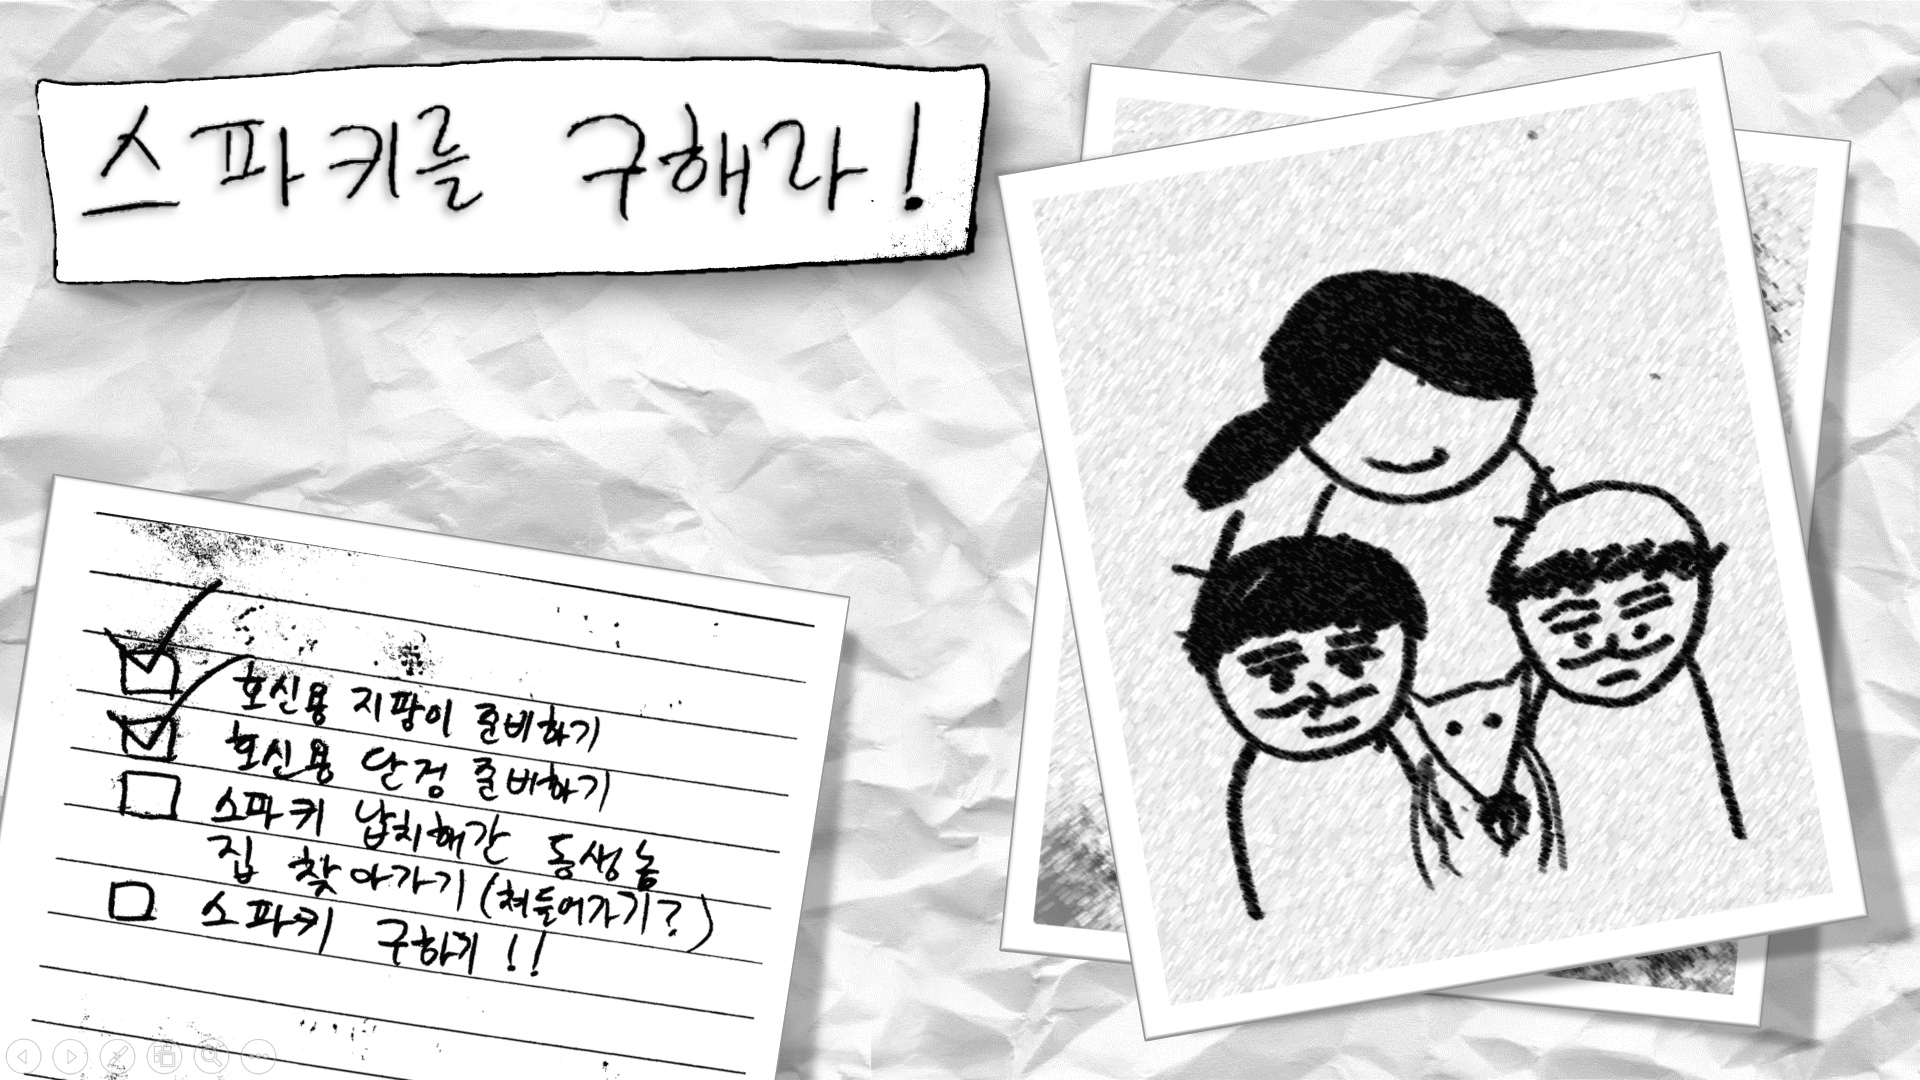 스파키를 구해라!
호신용 지팡이 준비하기
호신용 단검 준비하기
스파키 납치해간 동생놈
집 찾아가기 (쳐들어가기?)
스파키 구하기!!